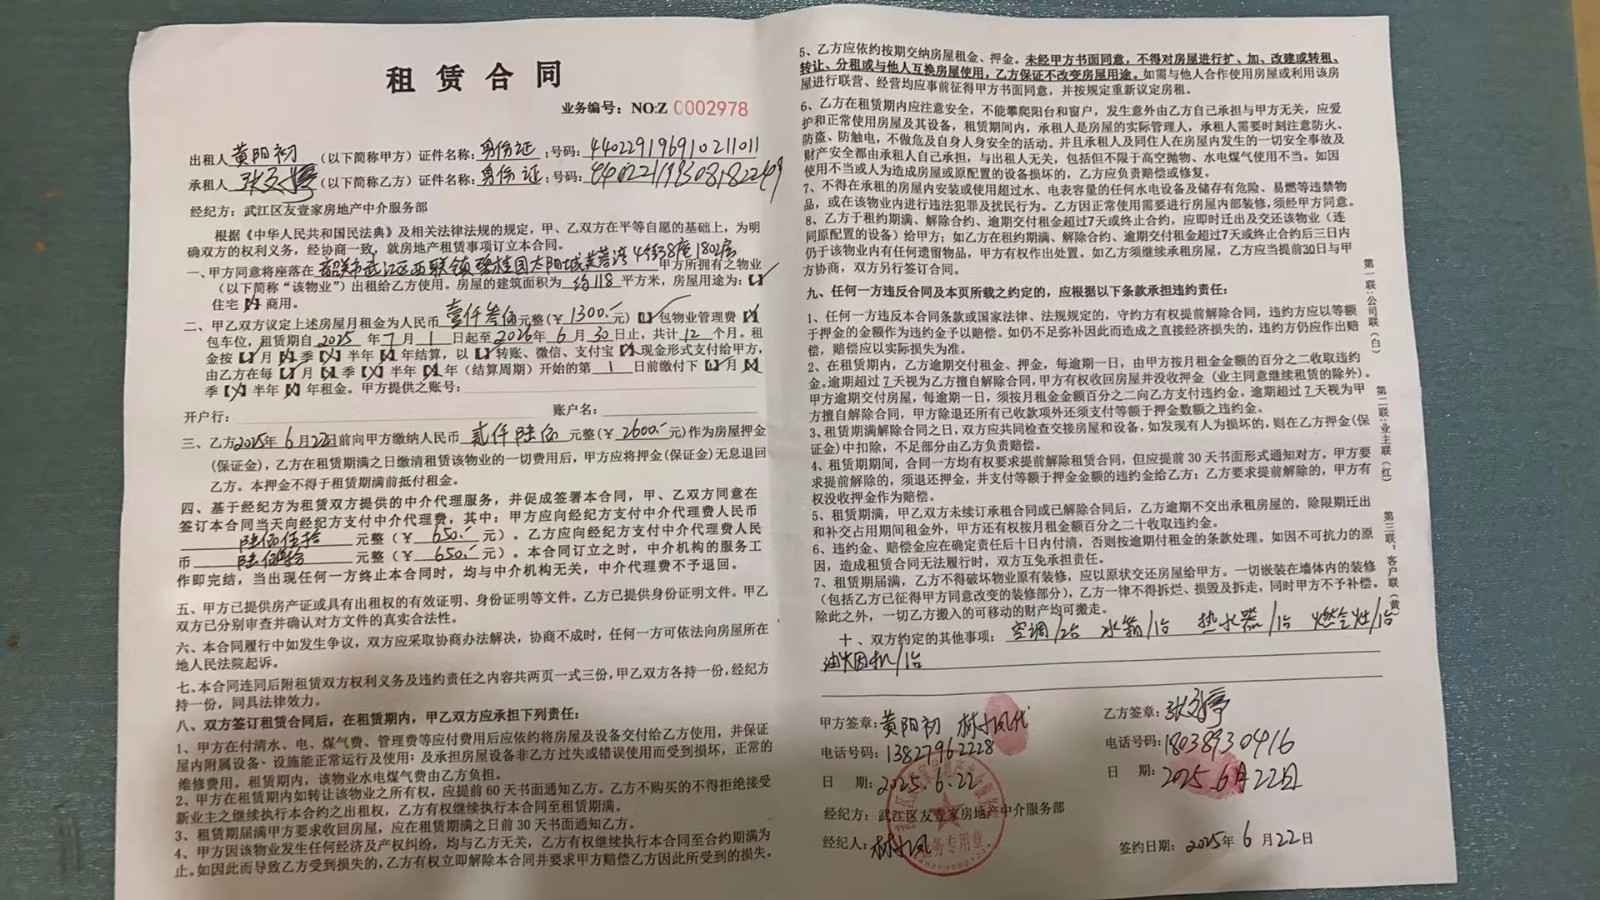 租赁合同
业务编号：NO:Z 0002978
出租人 黄阳初 （以下简称甲方）证件名称：身份证：号码：440229196910211011
承租人 （以下简称乙方）证件名称：身份证：号码：
经纪方：武江区友壹家房地产中介服务部
根据《中华人民共和国民法典》及相关法律法规的规定，甲、乙双方在平等自愿的基础上，为明
确双方的权利义务，经协商一致，就房地产租赁事项订立本合同。
一、甲方同意将座落在 韶关市武江区西联镇碧桂园太阳城芙蓉湾4街38座1802房 甲方所拥有之物业
（以下简称“该物业”）出租给乙方使用。房屋的建筑面积为 约118 平方米，房屋用途为：【✓】
住宅【×】商用。
二、甲乙双方议定上述房屋月租金为人民币 壹仟叁佰 元整（￥1300.-元）【✓】包物业管理费【×】
包车位，租赁期自 2025 年 7 月 1 日起至 2026 年 6 月 30 日止，共计 12 个月。租
金按【✓】月【×】季【×】半年【×】年结算，以【✓】转账、微信、支付宝【×】现金形式支付给甲方，
由乙方在每【✓】月【×】季【×】半年【×】年（结算周期）开始的第 1 日前缴付下【✓】月【×】
季【×】半年【×】年租金。甲方提供之账号：
开户行： 账户名：
三、乙方 2025年 6月22日前向甲方缴纳人民币 贰仟陆佰 元整（￥2600.-元）作为房屋押金
（保证金），乙方在租赁期满之日缴清租赁该物业的一切费用后，甲方应将押金（保证金）无息退回
乙方。本押金不得于租赁期满前抵付租金。
四、基于经纪方为租赁双方提供的中介代理服务，并促成签署本合同，甲、乙双方同意在
签订本合同当天向经纪方支付中介代理费，其中：甲方应向经纪方支付中介代理费人民币
陆佰伍拾 元整（￥650.-元）。乙方应向经纪方支付中介代理费人民
币 陆佰伍拾 元整（￥650.-元）。本合同订立之时，中介机构的服务工
作即完结，当出现任何一方终止本合同时，均与中介机构无关，中介代理费不予退回。
五、甲方已提供房产证或具有出租权的有效证明、身份证明等文件。乙方已提供身份证明文件。甲乙
双方已分别审查并确认对方文件的真实合法性。
六、本合同履行中如发生争议，双方应采取协商办法解决，协商不成时，任何一方可依法向房屋所在
地人民法院起诉。
七、本合同连同后附租赁双方权利义务及违约责任之内容共两页一式三份，甲乙双方各持一份，经纪方
持一份，同具法律效力。
八、双方签订租赁合同后，在租赁期内，甲乙双方应承担下列责任：
1、甲方在付清水、电、煤气费、管理费等应付费用后应依约将房屋及设备交付给乙方使用，并保证
屋内附属设备、设施能正常运行及使用；及承担房屋设备非乙方过失或错误使用而受到损坏，正常的
维修费用。租赁期内，该物业水电煤气费由乙方负担。
2、甲方在租赁期内如转让该物业之所有权，应提前60天书面通知乙方。乙方不购买的不得拒绝接受
新业主之继续执行本合约之出租权，乙方有权继续执行本合同至租赁期满。
3、租赁期届满甲方要求收回房屋，应在租赁期满之日前30天书面通知乙方。
4、甲方因该物业发生任何经济及产权纠纷，均与乙方无关，乙方有权继续执行本合同至合约期满为
止。如因此而导致乙方受到损失的，乙方有权立即解除本合同并要求甲方赔偿乙方因此所受到的损失。
5、乙方应依约按期交纳房屋租金、押金。未经甲方书面同意，不得对房屋进行扩、加、改建或转租、
转让、分租或与他人互换房屋使用，乙方保证不改变房屋用途。如需与他人合作使用房屋或利用该房
屋进行联营、经营均应事前征得甲方书面同意，并按规定重新议定房租。
6、乙方在租赁期内应注意安全，不能攀爬阳台和窗户，发生意外由乙方自己承担与甲方无关，应爱
护和正常使用房屋及其设备，租赁期间内，承租人是房屋的实际管理人，承租人需要时刻注意防火、
防盗、防触电，不做危及自身人身安全的活动。并且承租人及同住人在房屋内发生的一切安全事故及
财产安全都由承租人自己承担，与出租人无关，包括但不限于高空抛物、水电煤气使用不当。如因
使用不当或人为造成房屋或原配置的设备损坏的，乙方应负责赔偿或修复。
7、不得在承租的房屋内安装或使用超过水、电表容量的任何水电设备及储存有危险、易燃等违禁物
品，或在该物业内进行违法犯罪及扰民行为。乙方因正常使用需要进行房屋内部装修，须经甲方同意。
8、乙方于租约期满、解除合约、逾期交付租金超过7天或终止合约，应即时迁出及交还该物业（连
同原配置的设备）给甲方；如乙方在租约期满、解除合约、逾期交付租金超过7天或终止合约后三日内
仍于该物业内有任何遗留物品，甲方有权作出处置。如乙方须继续承租房屋，乙方应当提前30日与甲
方协商，双方另行签订合同。
九、任何一方违反合同及本页所载之约定的，应根据以下条款承担违约责任：
1、任何一方违反本合同条款或国家法律、法规规定的，守约方有权提前解除合同，违约方应以等额
于押金的金额作为违约金予以赔偿。如仍不足弥补因此而造成之直接经济损失的，违约方仍应作出赔
偿，赔偿应以实际损失为准。
2、在租赁期内，乙方逾期交付租金、押金，每逾期一日，由甲方按月租金金额的百分之二收取违约
金。逾期超过7天视为乙方擅自解除合同，甲方有权收回房屋并没收押金（业主同意继续租赁的除外）。
甲方逾期交付房屋，每逾期一日，须按月租金金额百分之二向乙方支付违约金。逾期超过7天视为甲
方擅自解除合同，甲方除退还所有已收款项外还须支付等额于押金数额之违约金。
3、租赁期满解除合同之日，双方应共同检查交接房屋和设备，如发现有人为损坏的，则在乙方押金（保
证金）中扣除，不足部分由乙方负责赔偿。
4、租赁期期间，合同一方均有权要求提前解除租赁合同，但应提前30天书面形式通知对方。甲方要
求提前解除的，须退还押金，并支付等额于押金金额的违约金给乙方；乙方要求提前解除的，甲方有
权没收押金作为赔偿。
5、租赁期满，甲乙双方未续订承租合同或已解除合同后，乙方逾期不交出承租房屋的，除限期迁出
和补交占用期间租金外，甲方还有权按月租金额百分之二十收取违约金。
6、违约金、赔偿金应在确定责任后十日内付清，否则按逾期付租金的条款处理。如因不可抗力的原
因，造成租赁合同无法履行时，双方互免承担责任。
7、租赁期届满，乙方不得破坏物业原有装修，应以原状交还房屋给甲方。一切嵌装在墙体内的装修
（包括乙方已征得甲方同意改变的装修部分），乙方一律不得拆烂、损毁及拆走，同时甲方不予补偿。
除此之外，一切乙方搬入的可移动的财产均可搬走。
十、双方约定的其他事项：空调/2台 冰箱/1台 热水器/1台 燃气灶/1台
油烟机/1台
甲方签章：黄阳初 代
电话号码：13827962228
日 期：2025.6.22
经纪方：武江区友壹家房地产中介服务部
经纪人：
乙方签章：
电话号码：18038930416
日 期：2025.6月22日
签约日期：2025年 6 月 22 日
第一联：公司联（白）
第二联：业主联（红）
第三联：客户联（黄）
业务专用章